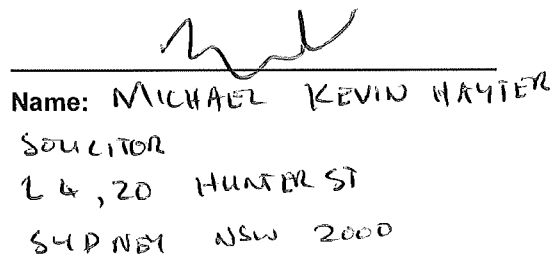 Name: MICHAEL KEVIN HAYTER
SOLICITOR
L4, 20 HUNTER ST
SYDNEY NSW 2000